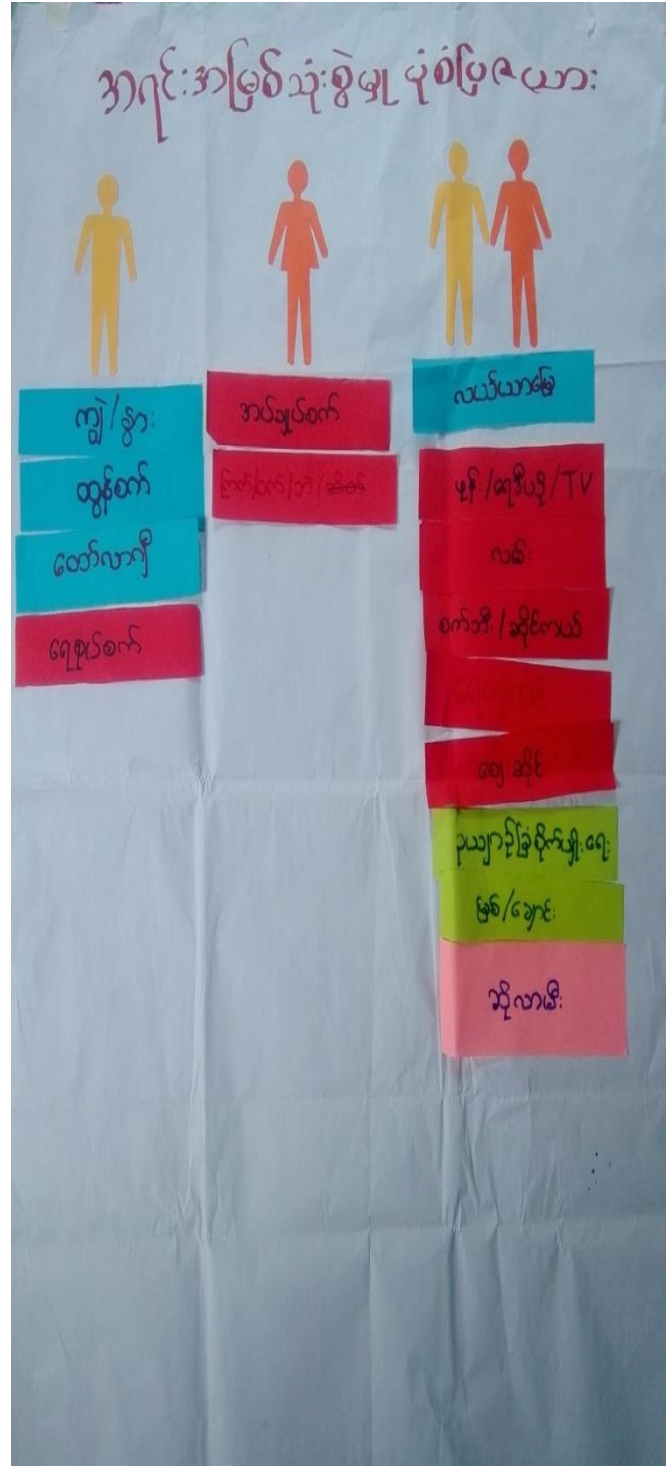 အရင်းအမြစ်သုံးစွဲမှု ပုံစံပြဇယား
ကျွဲ/နွား
ထွန်စက်
ထော်လာဂျီ
ရေစုပ်စက်
အပ်ချုပ်စက်
ကြက်/ဝက်/ဘဲ/ဆိတ်
လယ်ယာမြေ
ဖုန်း/ရေဒီယို/TV
လမ်း
စက်ဘီး/ဆိုင်ကယ်
စျေးဆိုင်
ဥယျာဉ်ခြံစိုက်ပျိုးရေး
မြစ်/ချောင်း
ဆိုလာမီး